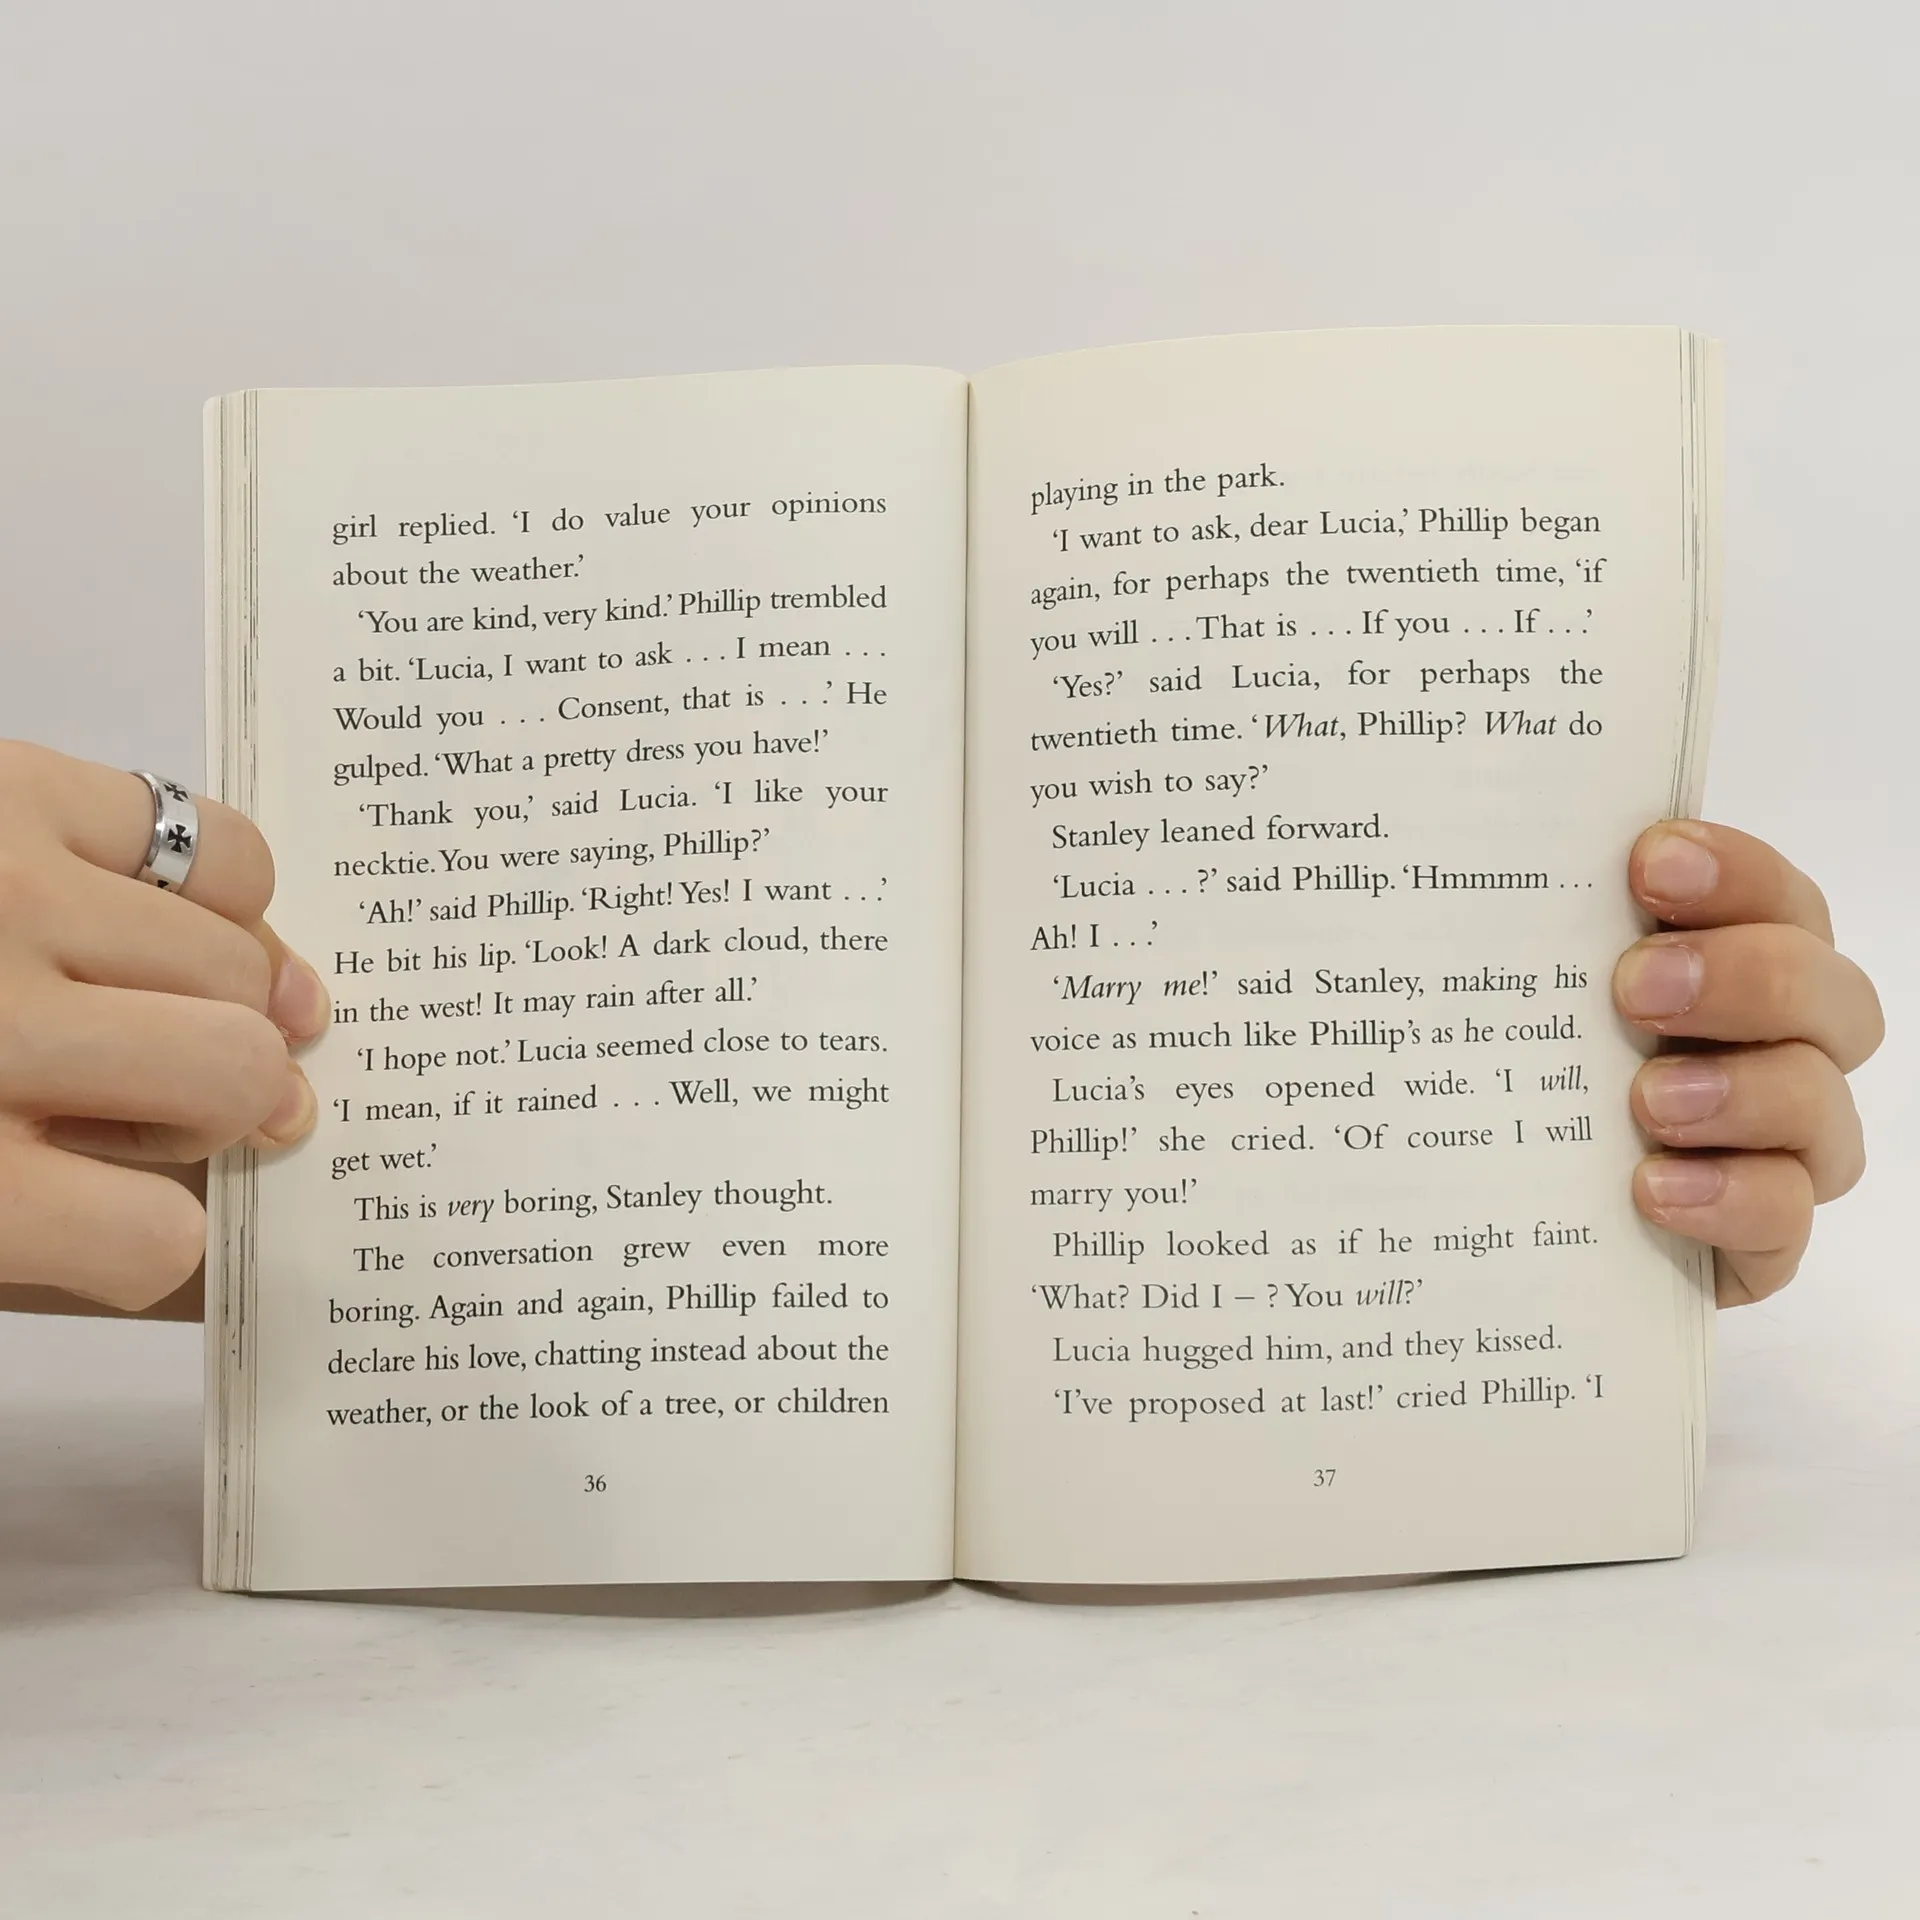 girl replied. ‘I do value your opinions
about the weather.’
‘You are kind, very kind.’ Phillip trembled
a bit. ‘Lucia, I want to ask . . . I mean . . .
Would you . . . Consent, that is . . .’ He
gulped. ‘What a pretty dress you have!’
‘Thank you,’ said Lucia. ‘I like your
necktie. You were saying, Phillip?’
‘Ah!’ said Phillip. ‘Right! Yes! I want . . .’
He bit his lip. ‘Look! A dark cloud, there
in the west! It may rain after all.’
‘I hope not.’ Lucia seemed close to tears.
‘I mean, if it rained . . . Well, we might
get wet.’
This is very boring, Stanley thought.
The conversation grew even more
boring. Again and again, Phillip failed to
declare his love, chatting instead about the
weather, or the look of a tree, or children
36
playing in the park.
‘I want to ask, dear Lucia,’ Phillip began
again, for perhaps the twentieth time, ‘if
you will . . . That is . . . If you . . . If . . .’
‘Yes?’ said Lucia, for perhaps the
twentieth time. ‘What, Phillip? What do
you wish to say?’
Stanley leaned forward.
‘Lucia . . . ?’ said Phillip. ‘Hmmmm . . .
Ah! I . . .’
‘Marry me!’ said Stanley, making his
voice as much like Phillip’s as he could.
Lucia’s eyes opened wide. ‘I will,
Phillip!’ she cried. ‘Of course I will
marry you!’
Phillip looked as if he might faint.
‘What? Did I – ? You will?’
Lucia hugged him, and they kissed.
‘I’ve proposed at last!’ cried Phillip. ‘I
37